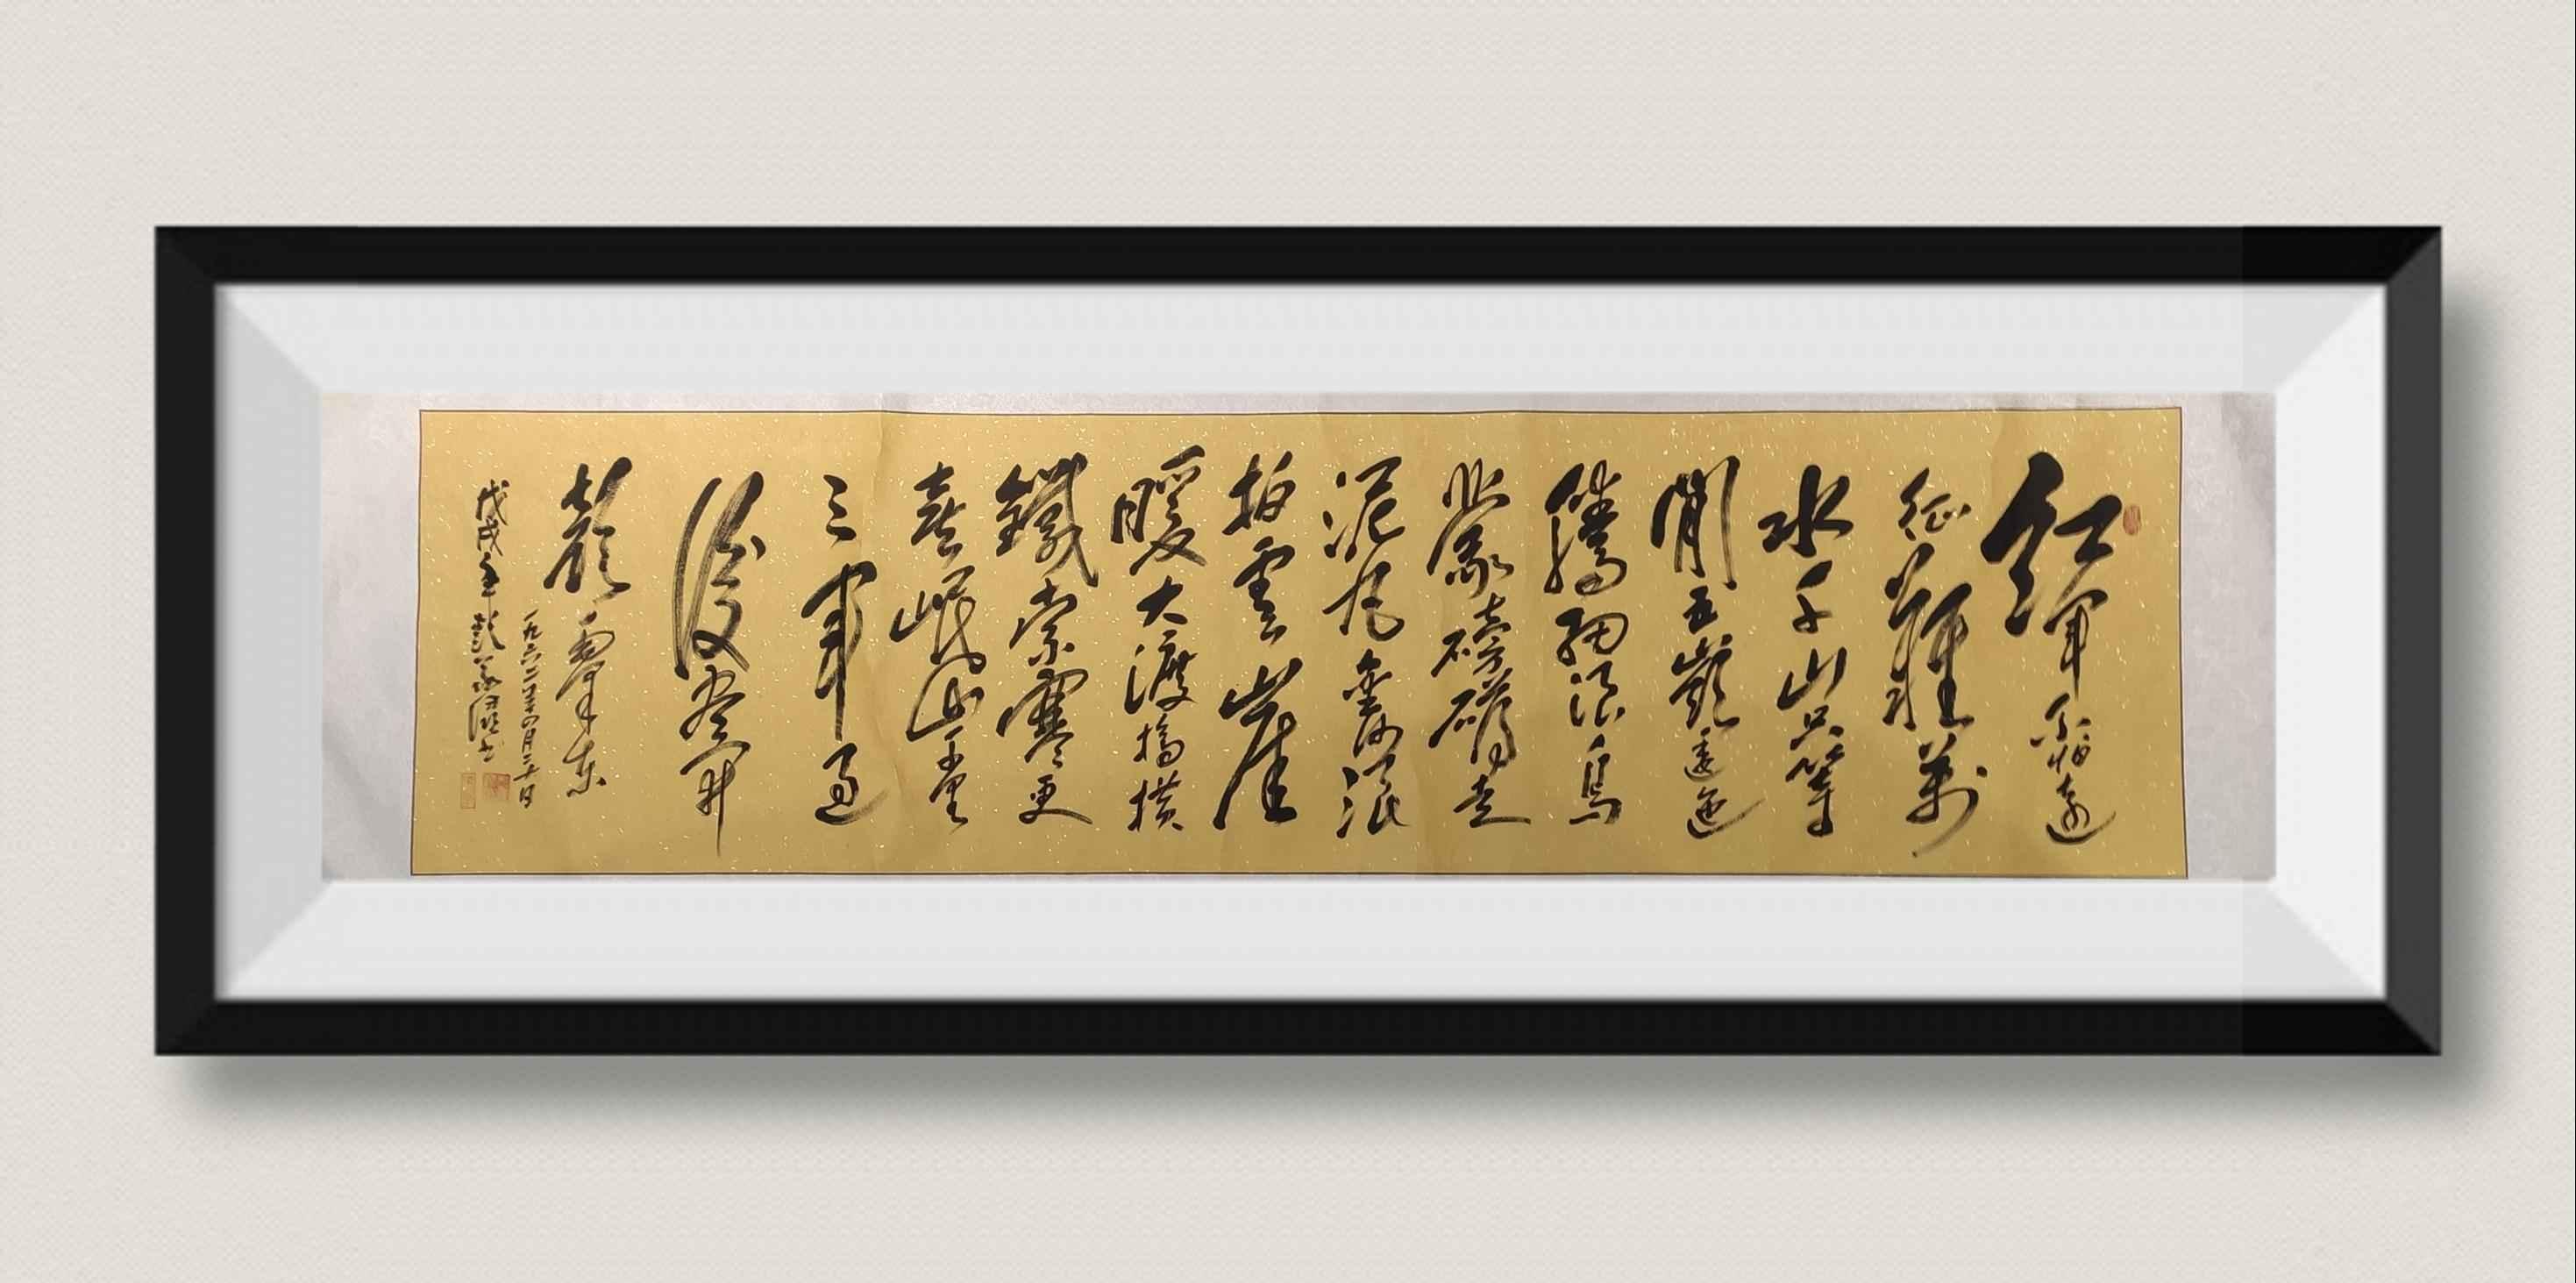 紅軍不怕遠
征難萬
水千山只等
閒五嶺逶迤
騰細浪烏
蒙磅礴走
泥丸金沙浪
拍雲崖
暖大渡橋橫
鐵索寒更
喜岷山千里雪
三軍過
後盡開
顏毛澤東
一九六二年四月二十日
戊戌年彭書